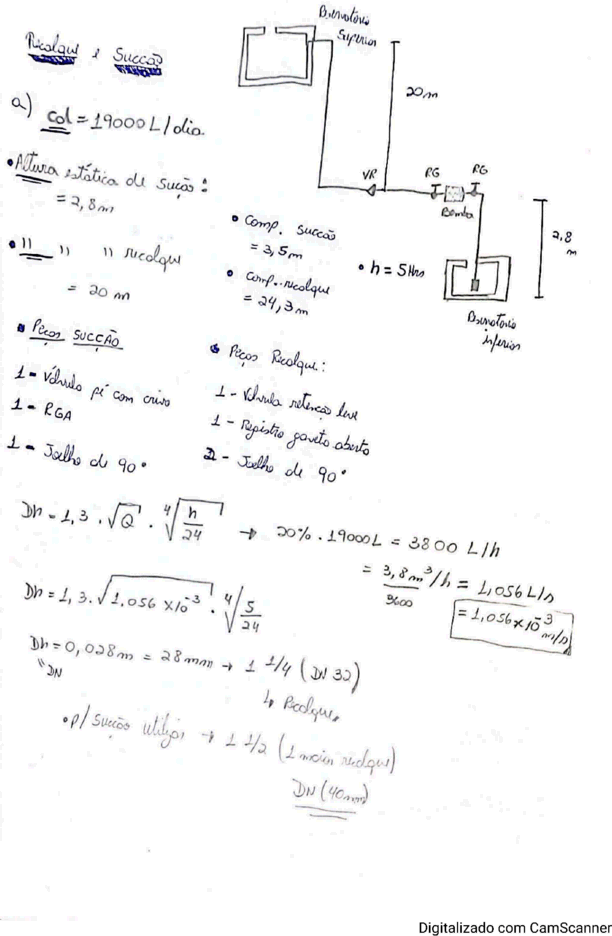 Recalque e Sucção
Reservatório
Superior
20m
a) Col = 19000 L/dia.
• Altura estática de sução:
= 2,8m
VR
RG
RG
Bomba
2,8
m
• " " " recalque
= 20 m
• Comp. sucção
= 3,5m
• Comp. recalque
= 24,3m
• h = 5 Hrs
Reservatório
inferior
• Peças SUCCÃO
1 - Válvula pé com crivo
1 - RGA
1 - Joelho de 90°
• Peças Recalque:
1 - Válvula retenção leve
1 - Registro gaveta aberto
2 - Joelho de 90°
Dh = 1,3 . √Q . ⁴√h/24 → 20% . 19000L = 3800 L/h
= 3,8m³/h = 1,056 L/s
3600
= 1,056 x 10⁻³ m/s
Dh = 1,3 . √1,056 x 10⁻³ . ⁴√5/24
Dh = 0,028m = 28mm → 1 1/4 (DN 32)
"DN
↳ Recalque
• p/ Sucção utilizar → 1 1/2 (1 maior recalque)
DN (40mm)
Digitalizado com CamScanner